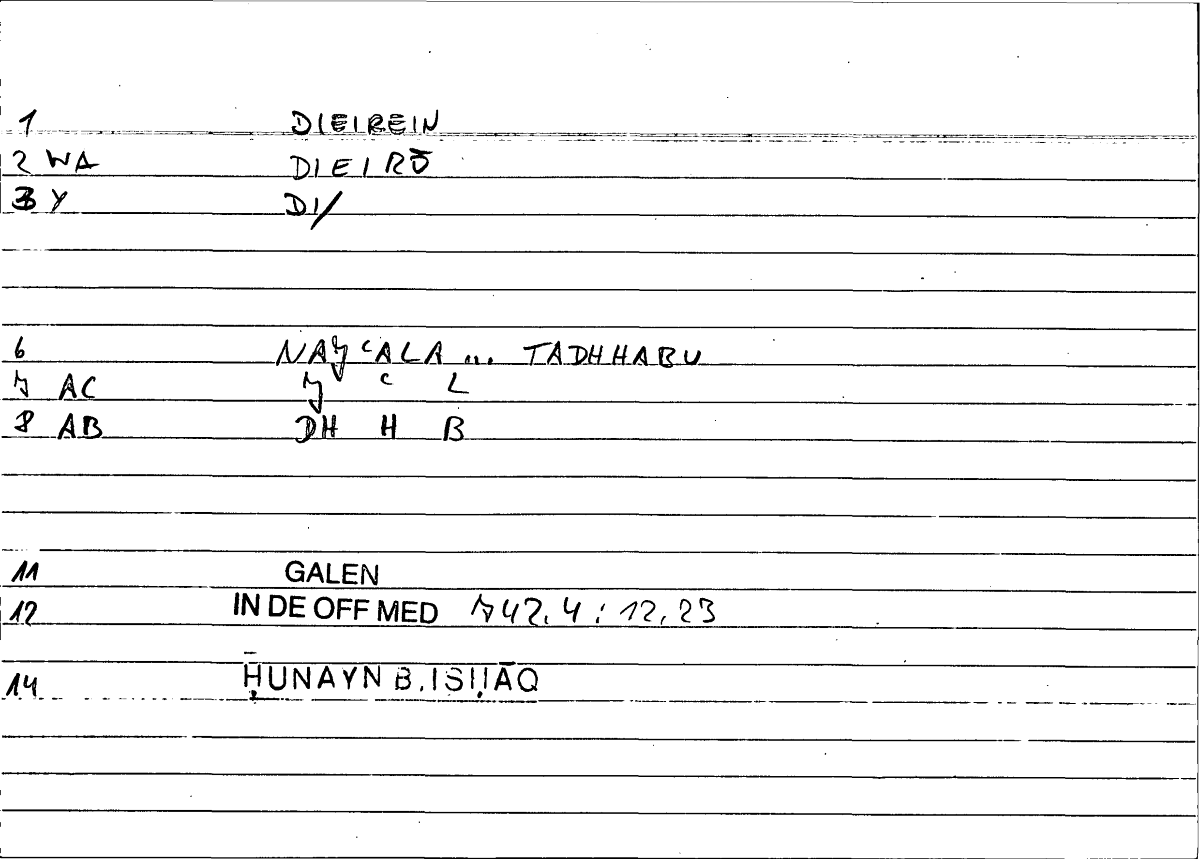 1 DIEIREIN
2 WA DIEIRŌ
3 Y DI/
6 NAJʿALA ... TADHHABU
7 AC J ʿ L
8 AB DH H B
11 GALEN
12 IN DE OFF MED 742,4 : 12,23
14 ḤUNAYN B. ISḤĀQ